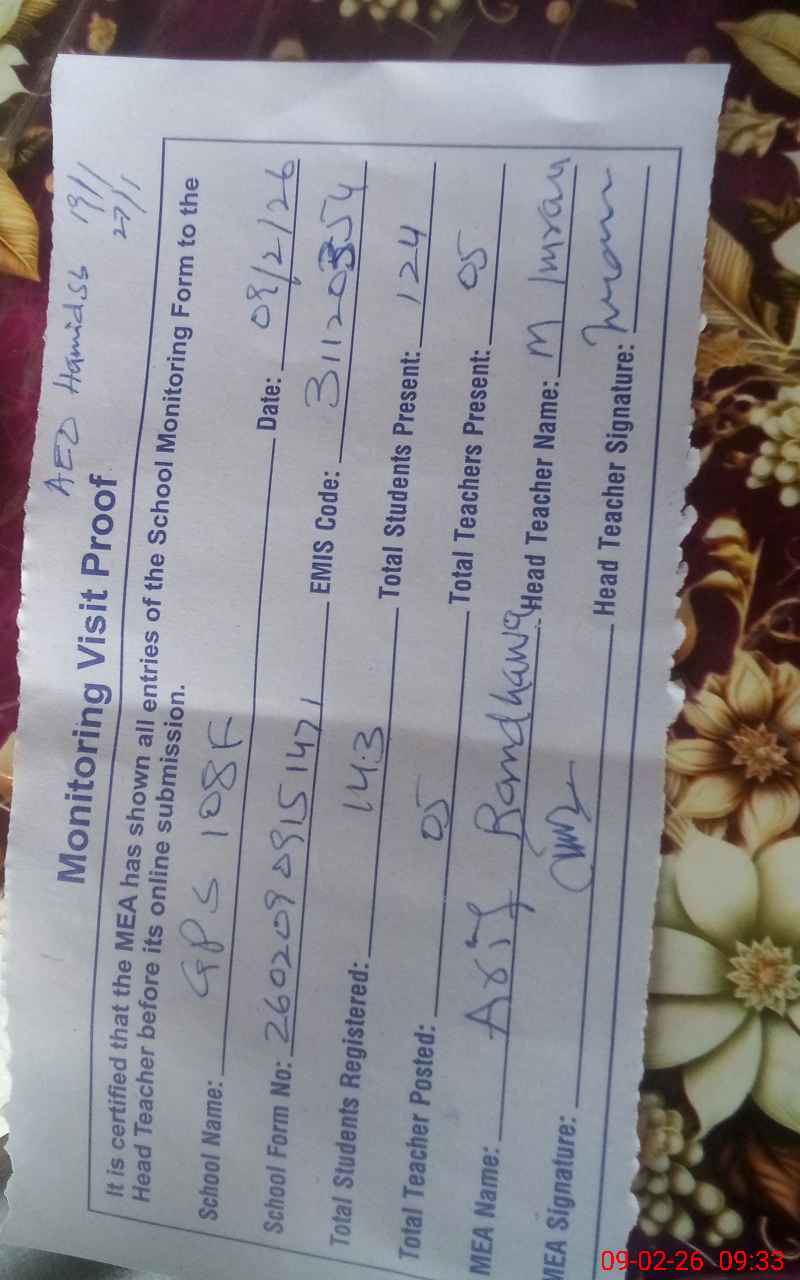 AEO Hamid Sb 19/1
27/1
Monitoring Visit Proof
It is certified that the MEA has shown all entries of the School Monitoring Form to the
Head Teacher before its online submission.
School Name: GPS 108F Date: 09/2/26
School Form No: 260209 09151471 EMIS Code: 31120354
Total Students Registered: 143 Total Students Present: 124
Total Teacher Posted: 05 Total Teachers Present: 05
MEA Name: Arif Randhawa Head Teacher Name: M Imran
MEA Signature: Head Teacher Signature: Imran
09-02-26 09:33